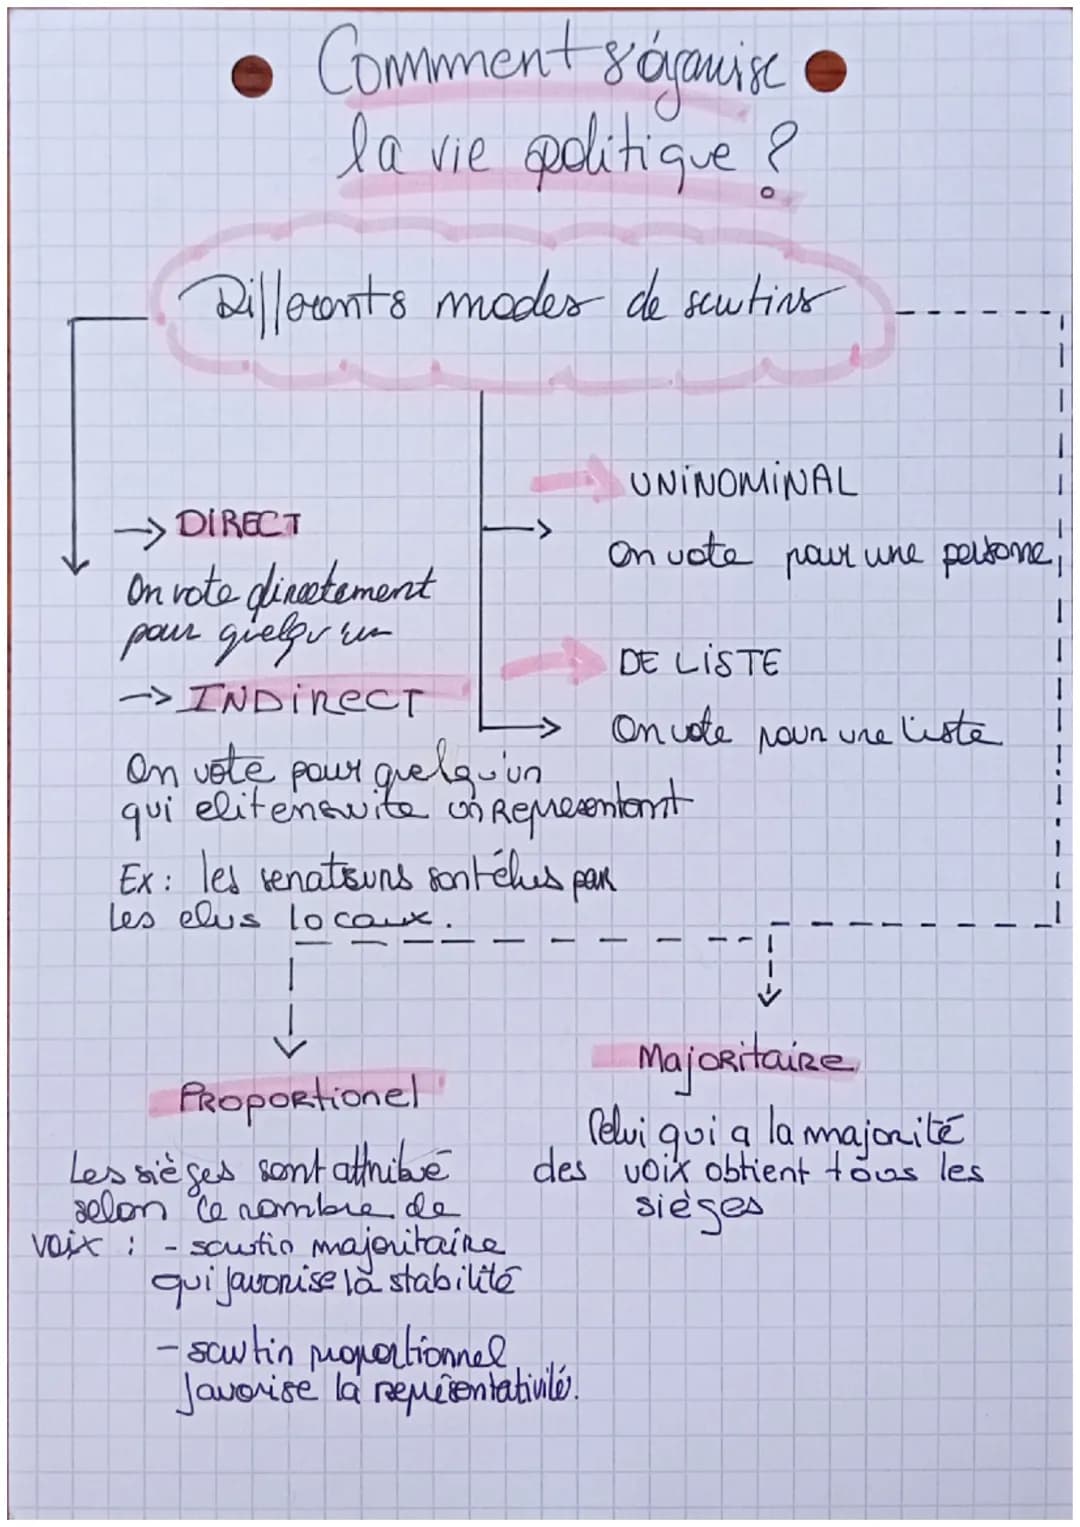 Comment s'organise
la vie politique ?
Différents modes de scrutins
→ DIRECT
On vote directement
pour quelqu'un
→ INDIRECT
On vote pour quelqu'un
qui elit ensuite un Representant
Ex : les senateurs sont élus par
les elus locaux.
UNINOMINAL
On vote pour une personne
DE LISTE
On vote pour une liste
Proportionel
Les sièges sont attribué
selon le nombre de
voix : - scrutin majoritaire
qui favorise la stabilité
- scrutin proportionnel
favorise la représentativité.
Majoritaire
Celui qui a la majorité
des voix obtient tous les
sièges